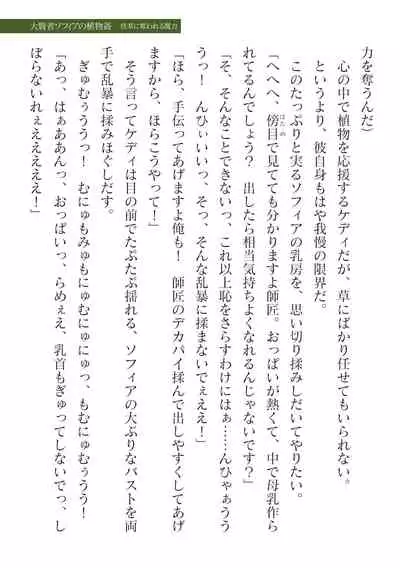 大賢者ソフィアの植物姦　怪草に奪われる魔力
力を奪うんだ）
　心の中で植物を応援するケディだが、草にばかり任せてもいられない。
　というより、彼自身もはや我慢の限界だ。
　このたっぷりと実るソフィアの乳房を、思い切り揉みしだいてやりたい。
「へへへ、傍目で見てても分かりますよ師匠。おっぱいが熱くて、中で母乳作ら
はため
れてるんでしょう？　出したら相当気持ちよくなれるんじゃないです？」
「そ、そんなことできないっ、これ以上恥をさらすわけにはぁ……んひゃぁうう
うっ！　んひぃいいっ、そっ、そんな乱暴に揉まないでぇええ！」
「ほら、手伝ってあげますよ俺も！　師匠のデカパイ揉んで出しやすくしてあげ
ますから、ほらこうやって！」
　そう言ってケディは目の前でたぷたぷ揺れる、ソフィアの大ぶりなバストを両
手で乱暴に揉みほぐしだす。
　ぎゅむぅううっ！　むにゅもみゅもにゅむにゅにゅっ、もむにゅむぅうう！
「あっ、はぁああんっ、おっぱいっ、らめぇえ、乳首もぎゅってしないでっ、し
ぼらないれぇええええ！」